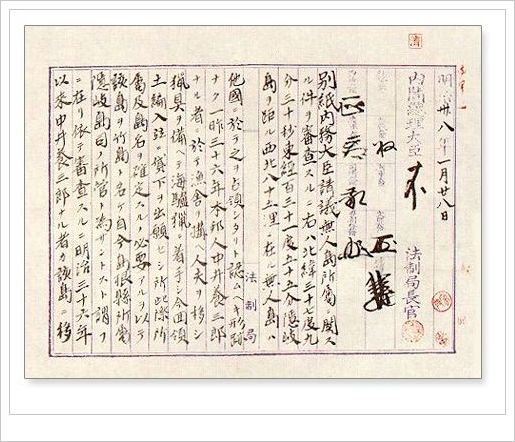 明治卅八年一月廿八日
内閣總理大臣
法制局長官
別紙内務大臣請議無人島所屬ニ關ス
ル件ヲ審査スルニ右ハ北緯三十七度九
分三十秒東經百三十一度五十五分隱岐
島ヲ距ル西北八十五浬ニ在ル無人島ハ
法制局
他國ニ於テ之ヲ占領シタリト認ムヘキ形跡
ナク一昨三十六年本邦人中井養三郎
ナル者ニ於テ漁舍ヲ構ヘ人夫ヲ移シ
猟具ヲ備ヘテ海驢猟ニ着手シ今回領
土編入並ニ貸下ヲ出願セシ所此際所
屬及島名ヲ確定スルノ必要アルヲ以テ
該島ヲ竹島ト名ケ自今島根縣所屬
隱岐島司ノ所管ト為サントスト謂フ
ニ在リ依テ審査スルニ明治三十六年
以來中井養三郎ナル者カ該島ニ移